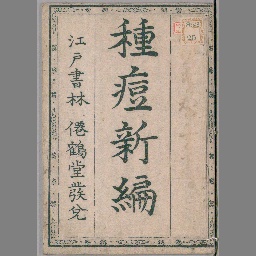 種痘新編
江戸書林 僊鶴堂發兌